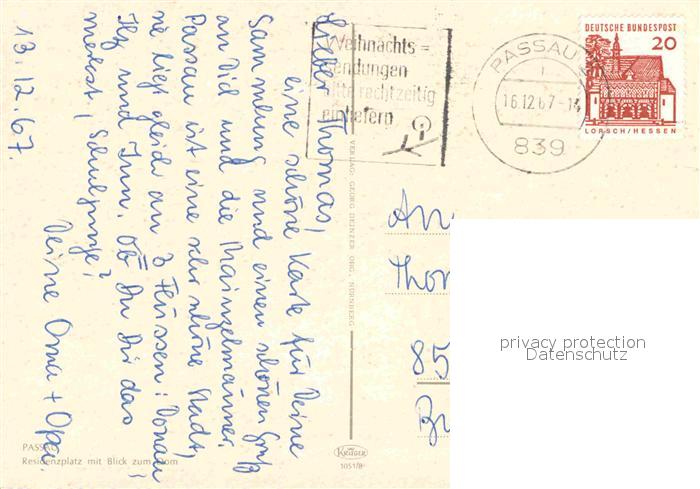 13.12.67.
Lieber Thomas,
eine schöne Karte für Deine
Sammlung und einen schönen Gruß
an Dich und die Mainzelmänner.
Passau ist eine sehr schöne Stadt,
sie liegt gleich an 3 Flüssen: Donau
Ilz und Inn. Ob Du Dir das
merkst, Schuljunge?
Deine Oma + Opa.
Weihnachts=
sendungen
bitte rechtzeitig
einliefern
PASSAU
16.12.67-14
839
DEUTSCHE BUNDESPOST
20
LORSCH/HESSEN
VERLAG: GEORG DEINZER OHG, NÜRNBERG
An
Thom
85
privacy protection
Datenschutz
PASSAU
Residenzplatz mit Blick zum Dom
KRÜGER
1051/8